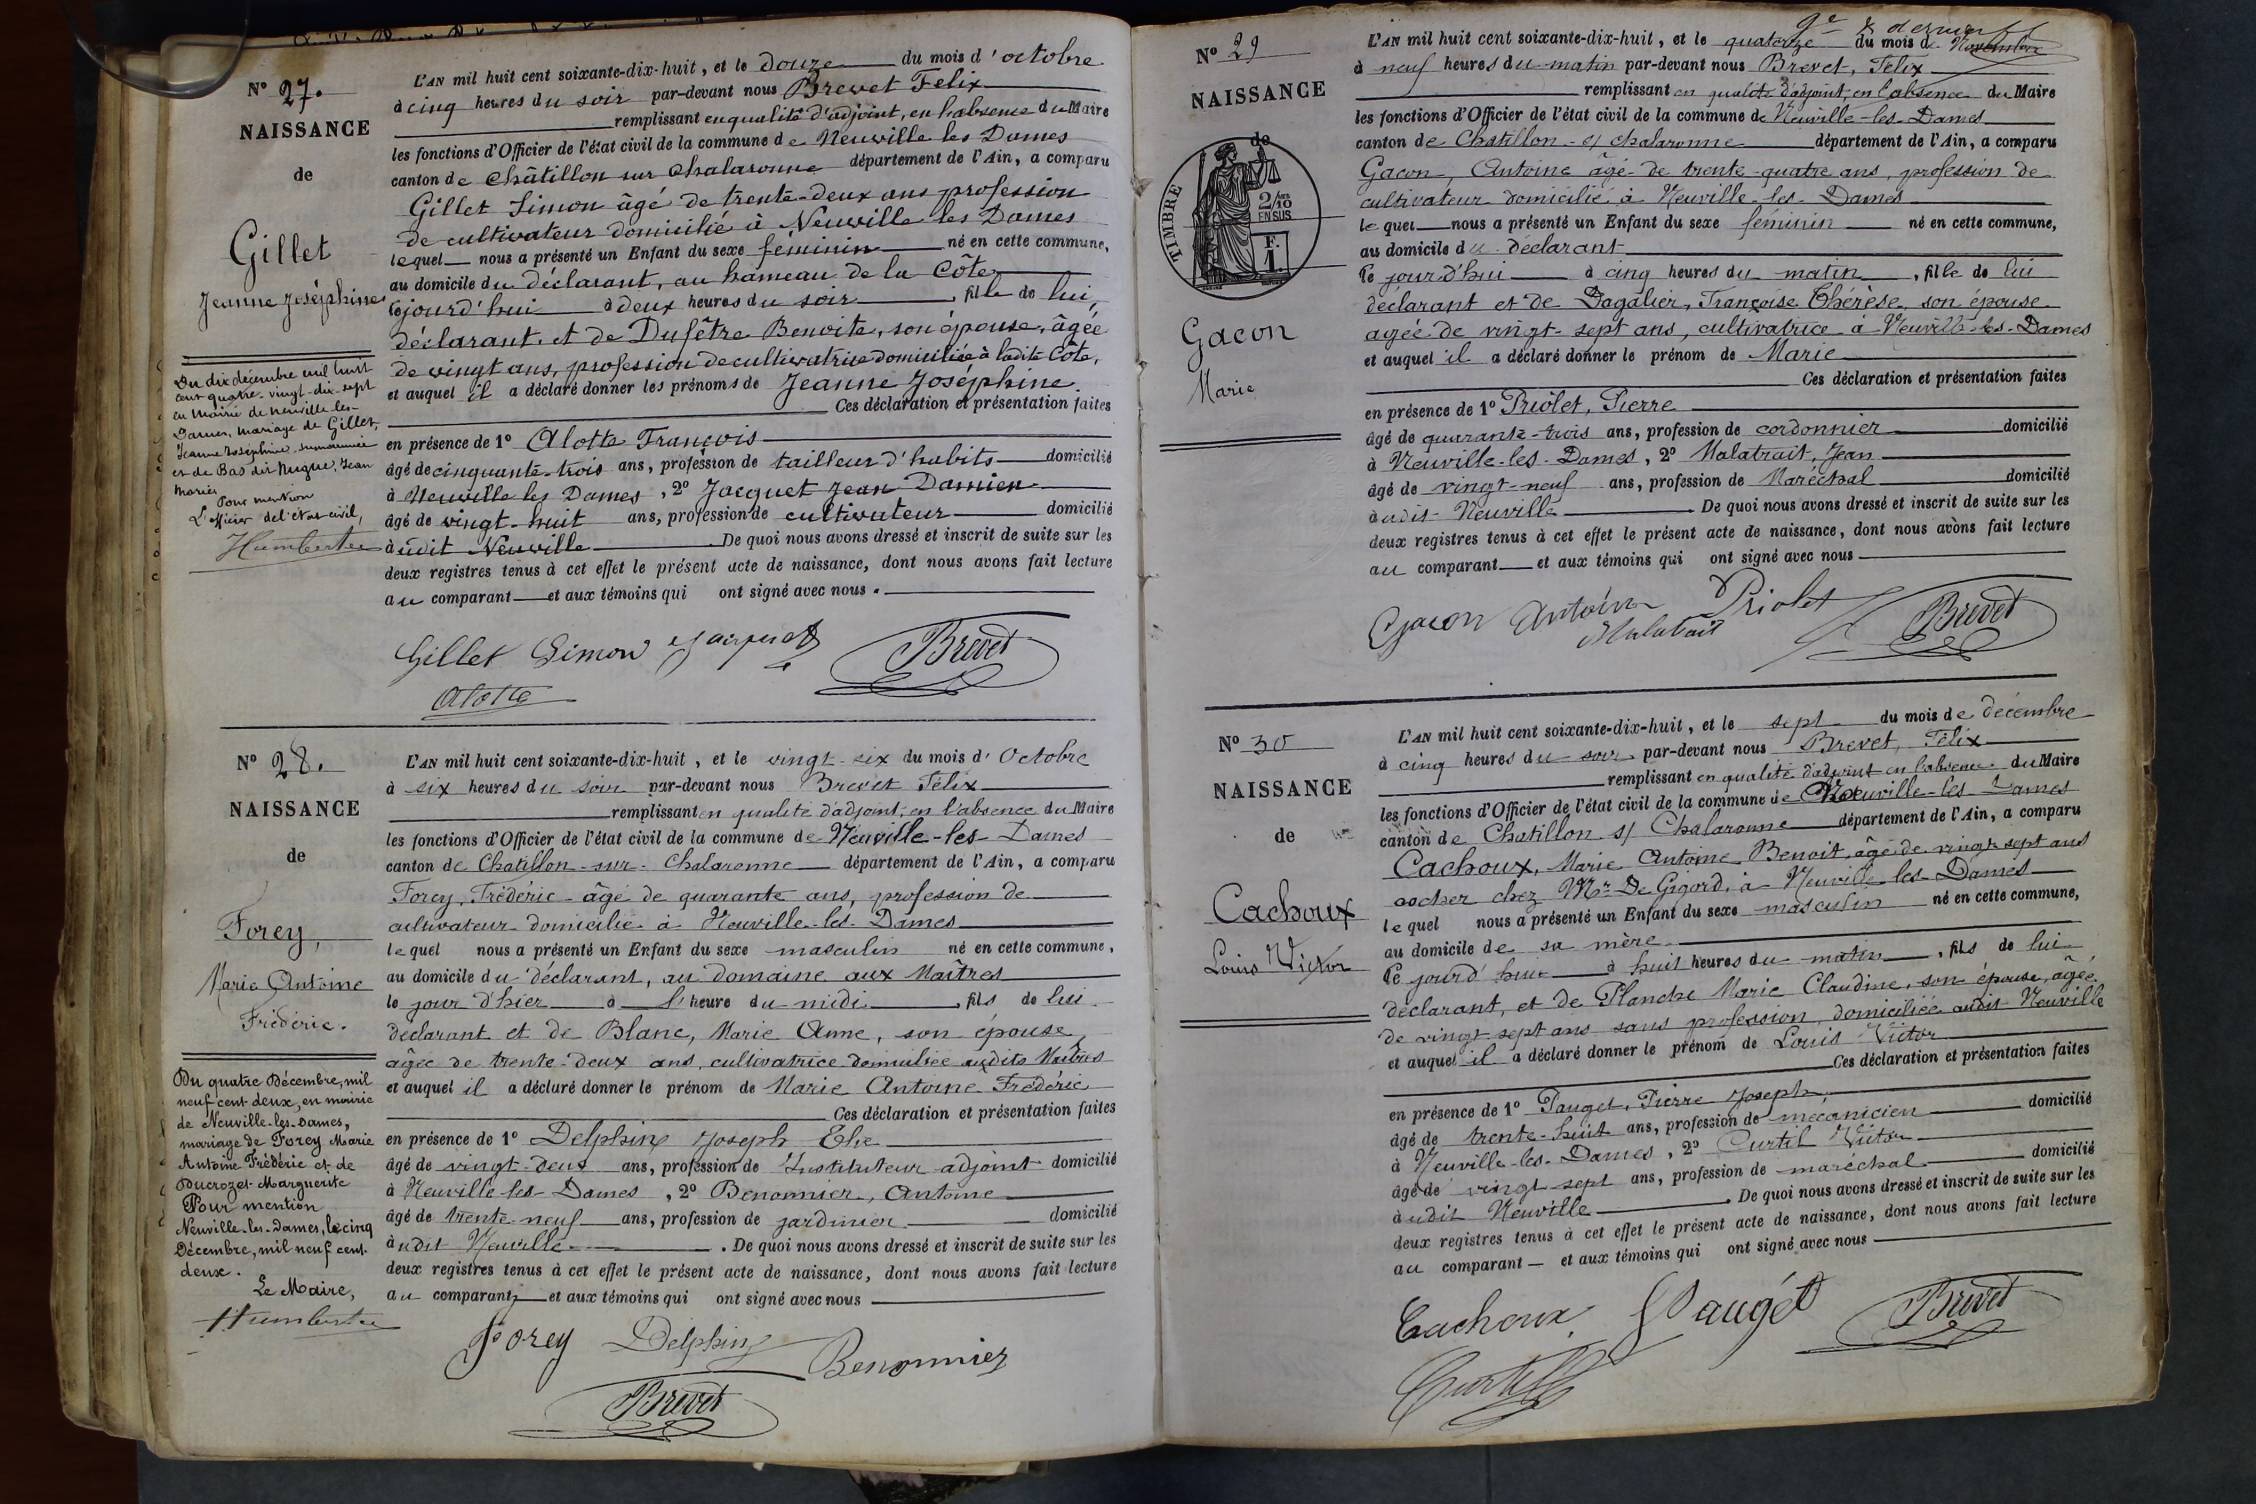 N° 27.
NAISSANCE
de
Gillet
Jeanne Joséphine
Du dix décembre mil huit
cent quatre-vingt-dix-sept
en Mairie de Neuville-les-
Dames, mariage de Gillet,
Jeanne Joséphine, surnommée
et de Bas dit Nugue, Jean
Marie
Pour mention
L'officier de l'état-civil,
Humbert
L'AN mil huit cent soixante-dix-huit, et le douze du mois d'octobre
à cinq heures du soir par-devant nous Brevet Felix
remplissant en qualité d'adjoint, en l'absence du Maire
les fonctions d'Officier de l'état civil de la commune de Neuville les Dames
canton de Châtillon sur Chalaronne département de l'Ain, a comparu
Gillet Simon âgé de trente-deux ans profession
de cultivateur domicilié à Neuville les Dames
lequel nous a présenté un Enfant du sexe féminin né en cette commune,
au domicile du déclarant, au hameau de la Côte
cejourd'hui à deux heures du soir, fille de lui,
déclarant, et de Dufêtre Benoite, son épouse, âgée
de vingt ans, profession de cultivatrice domiciliée à ladite Côte,
et auquel il a déclaré donner les prénoms de Jeanne Joséphine.
Ces déclaration et présentation faites
en présence de 1° Alotte François
âgé de cinquante-trois ans, profession de tailleur d'habits domicilié
à Neuville les Dames, 2° Jacquet Jean Damien
âgé de vingt-huit ans, profession de cultivateur domicilié
audit Neuville De quoi nous avons dressé et inscrit de suite sur les
deux registres tenus à cet effet le présent acte de naissance, dont nous avons fait lecture
au comparant et aux témoins qui ont signé avec nous.
Gillet Simon Jacquet Brevet
Alotte
N° 28.
NAISSANCE
de
Forey,
Marie Antoine
Frédéric.
Du quatre Décembre, mil
neuf cent deux, en mairie
de Neuville-les-Dames,
mariage de Forey Marie
Antoine Frédéric et de
Ducrozet Marguerite
Pour mention
Neuville-les-Dames, le cinq
Décembre, mil neuf cent-
deux.
Le Maire,
Humbert
L'AN mil huit cent soixante-dix-huit, et le vingt-six du mois d'Octobre
à six heures du soir par-devant nous Brevet Félix
remplissant en qualité d'adjoint, en l'absence du Maire
les fonctions d'Officier de l'état civil de la commune de Neuville-les-Dames
canton de Chatillon-sur-Chalaronne département de l'Ain, a comparu
Forey, Frédéric âgé de quarante ans, profession de
cultivateur domicilié à Neuville-les-Dames
lequel nous a présenté un Enfant du sexe masculin né en cette commune,
au domicile du déclarant, au domaine aux Maîtres
le jour d'hier à l'heure du midi, fils de lui
déclarant et de Blanc, Marie Anne, son épouse
âgée de trente-deux ans, cultivatrice domiciliée auxdits Maîtres
et auquel il a déclaré donner le prénom de Marie Antoine Frédéric
Ces déclaration et présentation faites
en présence de 1° Delphin Joseph Elie
âgé de vingt-deux ans, profession de Instituteur adjoint domicilié
à Neuville-les-Dames, 2° Benonnier, Antoine
âgé de trente-neuf ans, profession de jardinier domicilié
audit Neuville. De quoi nous avons dressé et inscrit de suite sur les
deux registres tenus à cet effet le présent acte de naissance, dont nous avons fait lecture
au comparant et aux témoins qui ont signé avec nous
Forey Delphin Benonnier
Brevet
9e & dernier
N° 29
NAISSANCE
de
TIMBRE
2/10
EN SUS
F.
1.
Gacon
Marie
L'AN mil huit cent soixante-dix-huit, et le quatorze du mois de Novembre
à neuf heures du matin par-devant nous Brevet, Félix
remplissant en qualité d'adjoint, en l'absence du Maire
les fonctions d'Officier de l'état civil de la commune de Neuville-les-Dames
canton de Chatillon-s/ Chalaronne département de l'Ain, a comparu
Gacon, Antoine âgé de trente-quatre ans, profession de
cultivateur domicilié à Neuville-les-Dames
lequel nous a présenté un Enfant du sexe féminin né en cette commune,
au domicile du déclarant
ce jourd'hui à cinq heures du matin, fille de lui
déclarant et de Dagalier, Françoise Thérèse, son épouse
agée de vingt-sept ans, cultivatrice à Neuville-les-Dames
et auquel il a déclaré donner le prénom de Marie
Ces déclaration et présentation faites
en présence de 1° Priolet, Pierre
âgé de quarante-trois ans, profession de cordonnier domicilié
à Neuville-les-Dames, 2° Malatrait, Jean
âgé de vingt-neuf ans, profession de Maréchal domicilié
audit Neuville. De quoi nous avons dressé et inscrit de suite sur les
deux registres tenus à cet effet le présent acte de naissance, dont nous avons fait lecture
au comparant et aux témoins qui ont signé avec nous
Gacon Antoine Priolet Brevet
Malatrait
N° 30
NAISSANCE
de
Cachoux
Louis Victor
L'AN mil huit cent soixante-dix-huit, et le sept du mois de décembre
à cinq heures du soir par-devant nous Brevet, Félix
remplissant en qualité d'adjoint en l'absence du Maire
les fonctions d'Officier de l'état civil de la commune de Neuville-les Dames
canton de Chatillon s/ Chalaronne département de l'Ain, a comparu
Cachoux, Marie Antoine Benoit, âgé de vingt-sept ans
cocher chez Mr De Gigord, à Neuville les Dames
lequel nous a présenté un Enfant du sexe masculin né en cette commune,
au domicile de sa mère
ce jourd'hui à huit heures du matin, fils de lui
déclarant, et de Planche Marie Claudine, son épouse, âgée
de vingt-sept ans sans profession, domiciliée audit Neuville
et auquel il a déclaré donner le prénom de Louis Victor
Ces déclaration et présentation faites
en présence de 1° Pauget, Pierre Joseph,
âgé de trente-huit ans, profession de mécanicien domicilié
à Neuville-les-Dames, 2° Curtil Victor
âgé de vingt-sept ans, profession de maréchal domicilié
audit Neuville. De quoi nous avons dressé et inscrit de suite sur les
deux registres tenus à cet effet le présent acte de naissance, dont nous avons fait lecture
au comparant et aux témoins qui ont signé avec nous
Cachoux Paugét Brevet
Curtil